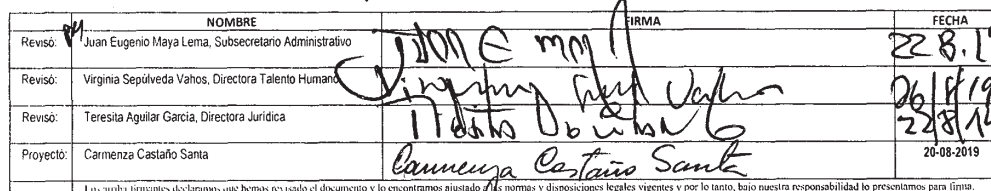 NOMBRE FIRMA FECHA
Revisó: Juan Eugenio Maya Lema, Subsecretario Administrativo
Revisó: Virginia Sepúlveda Vahos, Directora Talento Humano
Revisó: Teresita Aguilar García, Directora Jurídica
Proyectó: Carmenza Castaño Santa Carmenza Castaño Santa 20-08-2019
Los arriba firmantes declaramos que hemos revisado el documento y lo encontramos ajustado a las normas y disposiciones legales vigentes y por lo tanto, bajo nuestra responsabilidad lo presentamos para firma.